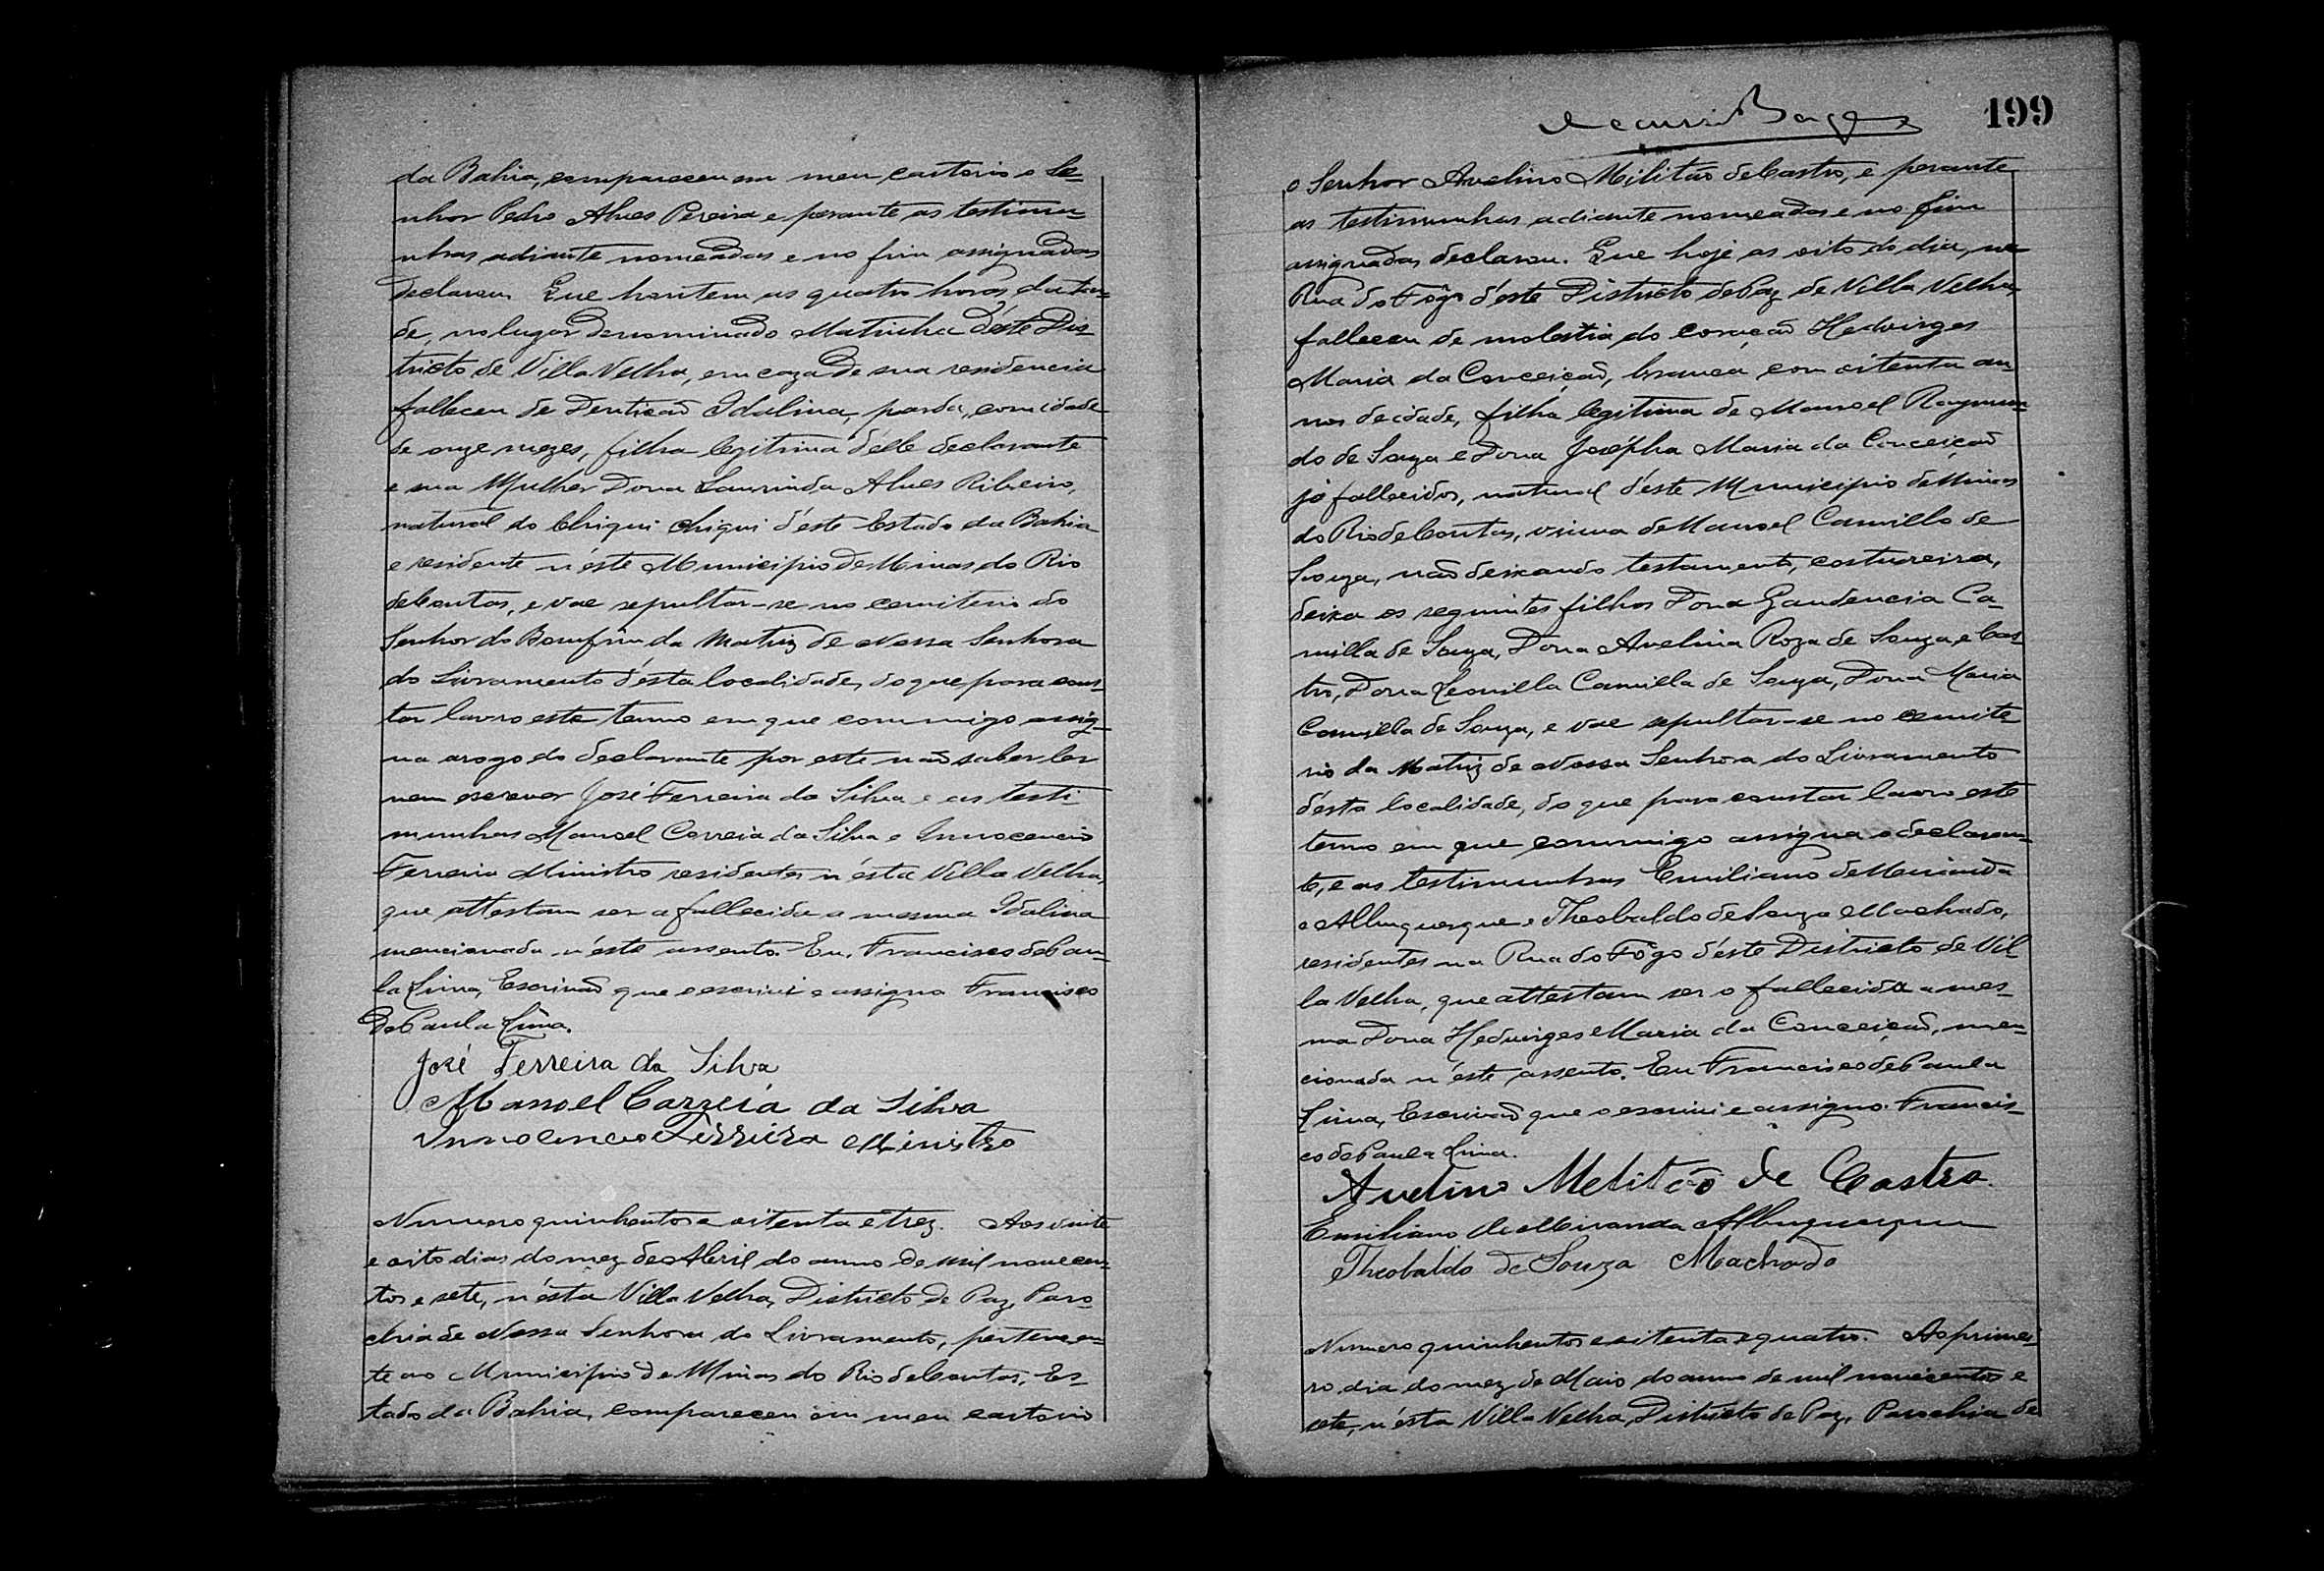 da Bahia, compareceu em meu cartorio o Se-
nhor Pedro Alves Pereira e perante as testimu-
nhas adiante nomeadas e no fim assignadas
declarou. Que hontem as quatro horas da tar-
de, no lugar denominado Matinha d'este Dis-
tricto de Villa Velha, em caza de sua residencia
falleceu de Dentição Idalina, parda, com idade
de onze mezes, filha legitima d'elle declarante
e sua Mulher Dona Laurinda Alves Ribeiro,
natural do Chiqui Chiqui d'este Estado da Bahia
e residente n'este Municipio de Minas do Rio
de Contas, e vae sepultar-se no cemiterio do
Senhor do Bomfim da Matriz de Nossa Senhora
do Livramento d'esta localidade, do que para cons-
tar lavro este termo em que commigo assig-
na arogo do declarante por este não saber ler
nem escrever José Ferreira da Silva e as testi
munhas Manoel Correia da Silva e Innocencio
Ferreira Ministro residentes n'esta Villa Velha,
que attestam ser a fallecida a mesma Idalina
mencionada n'este assento. Eu, Francisco de Pau-
la Lima, Escrivão que o escrivi e assigno Francisco
de Paula Lima.
José Ferreira da Silva
Manoel Correia da Silva
Innocencio Ferreira Ministro
Numero quinhentos e oitenta e trez. Aos vinte
e oito dias do mez de Abril do anno de mil novecen-
tos e sete, n'esta Villa Velha, Districto de Paz, Paro-
chia de Nossa Senhora do Livramento, pertencen-
te ao Municipio de Minas do Rio de Contas, Es-
tado da Bahia, compareceu em meu cartorio
199
o Senhor Avelino Militão de Castro, e perante
as testimunhas adiante nomeadas e no fim
assignadas declarou. Que hoje as oito do dia, na
Rua do Fôgo d'este Districto de Paz de Villa Velha,
falleceu de molestia do coração Hedvirges
Maria da Conceição, branca com oitenta an-
nos de idade, filha legitima de Manoel Raymun-
do de Souza e Dona Josépha Maria da Conceição
já fallecidos, natural d'este Municipio de Minas
do Rio de Contas, viuva de Manoel Camillo de
Souza, não deixando testamento, costureira,
deixa os seguintes filhos Dona Gaudencia Ca-
milla de Souza, Dona Avelina Roza de Souza, e Cas-
tro, Dona Leonilla Camilla de Souza, Dona Maria
Camilla de Souza, e vae sepultar-se no cemite-
rio da Matriz de Nossa Senhora do Livramento
d'esta localidade, do que para constar lavro este
termo em que commigo assigna o declaran-
te, e as testimunhas Emiliano de Miranda
e Albuquerque e Theobaldo de Souza Machado,
residentes na Rua do Fôgo d'este Districto de Vil
la Velha, que attestam ser a fallecida a mes-
ma Dona Hedvirges Maria da Conceição, men-
cionada n'este assento. Eu Francisco de Paula
Lima, Escrivão que o escrivi e assigno. Francis-
co de Paula Lima.
Avelino Melitão de Castro.
Emiliano de Miranda Albuquerque
Theobaldo de Souza Machado
Numero quinhentos e oitenta e quatro. Ao primei-
ro dia do mez de Maio do anno de mil novecentos e
sete, n'esta Villa Velha, Districto de Paz, Parochia de